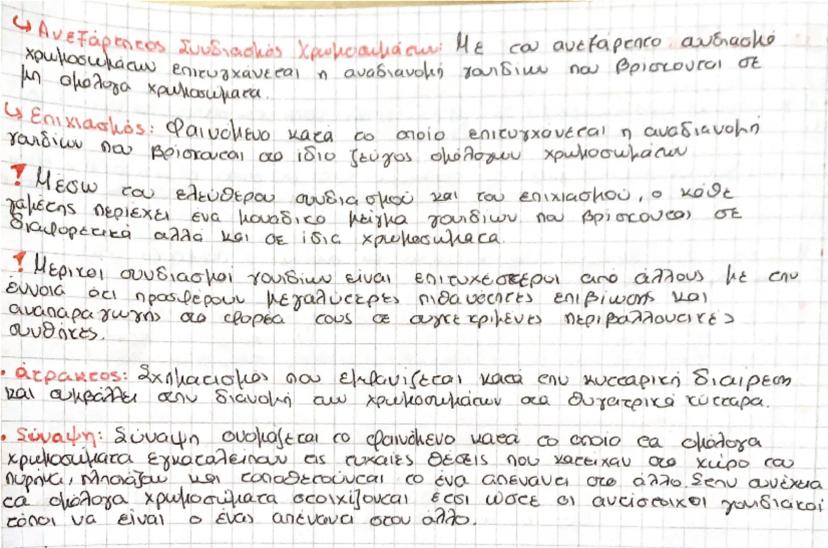 ↳ Ανεξάρτητος Συνδιασμός Χρωμοσωμάτων: Με τον ανεξάρτητο συνδιασμό
χρωμοσωμάτων επιτυγχάνεται η αναδιανομή γονιδίων που βρίσκονται σε
μη ομόλογα χρωμοσώματα.
↳ Επιχιασμός: Φαινόμενο κατά το οποίο επιτυγχάνεται η αναδιανομή
γονιδίων που βρίσκονται στο ίδιο ζεύγος ομόλογων χρωμοσωμάτων
! Μέσω του ελεύθερου συνδιασμού και του επιχιασμού, ο κάθε
γαμέτης περιέχει ένα μοναδικό μείγμα γονιδίων που βρίσκονται σε
διαφορετικά αλλά και σε ίδια χρωμοσώματα.
! Μερικοί συνδιασμοί γονιδίων είναι επιτυχέστεροι από άλλους με την
έννοια ότι προσφέρουν μεγαλύτερες πιθανότητες επιβίωσης και
αναπαραγωγής στο φορέα τους σε συγκεκριμένες περιβαλλοντικές
συνθήκες.
• άτρακτος: Σχηματισμός που εμφανίζεται κατά την κυτταρική διαίρεση
και συμβάλλει στην διανομή των χρωμοσωμάτων στα θυγατρικά κύτταρα.
• Σύναψη: Σύναψη ονομάζεται το φαινόμενο κατά το οποίο τα ομόλογα
χρωμοσώματα εγκαταλείπουν τις τυχαίες θέσεις που κατείχαν στο χώρο του
πυρήνα, πλησιάζουν και τοποθετούνται το ένα απέναντι στο άλλο. Στην συνέχεια
τα ομόλογα χρωμοσώματα στοιχίζονται έτσι ώστε οι αντίστοιχοι γονιδιακοί
τόποι να είναι ο ένας απέναντι στον άλλο.